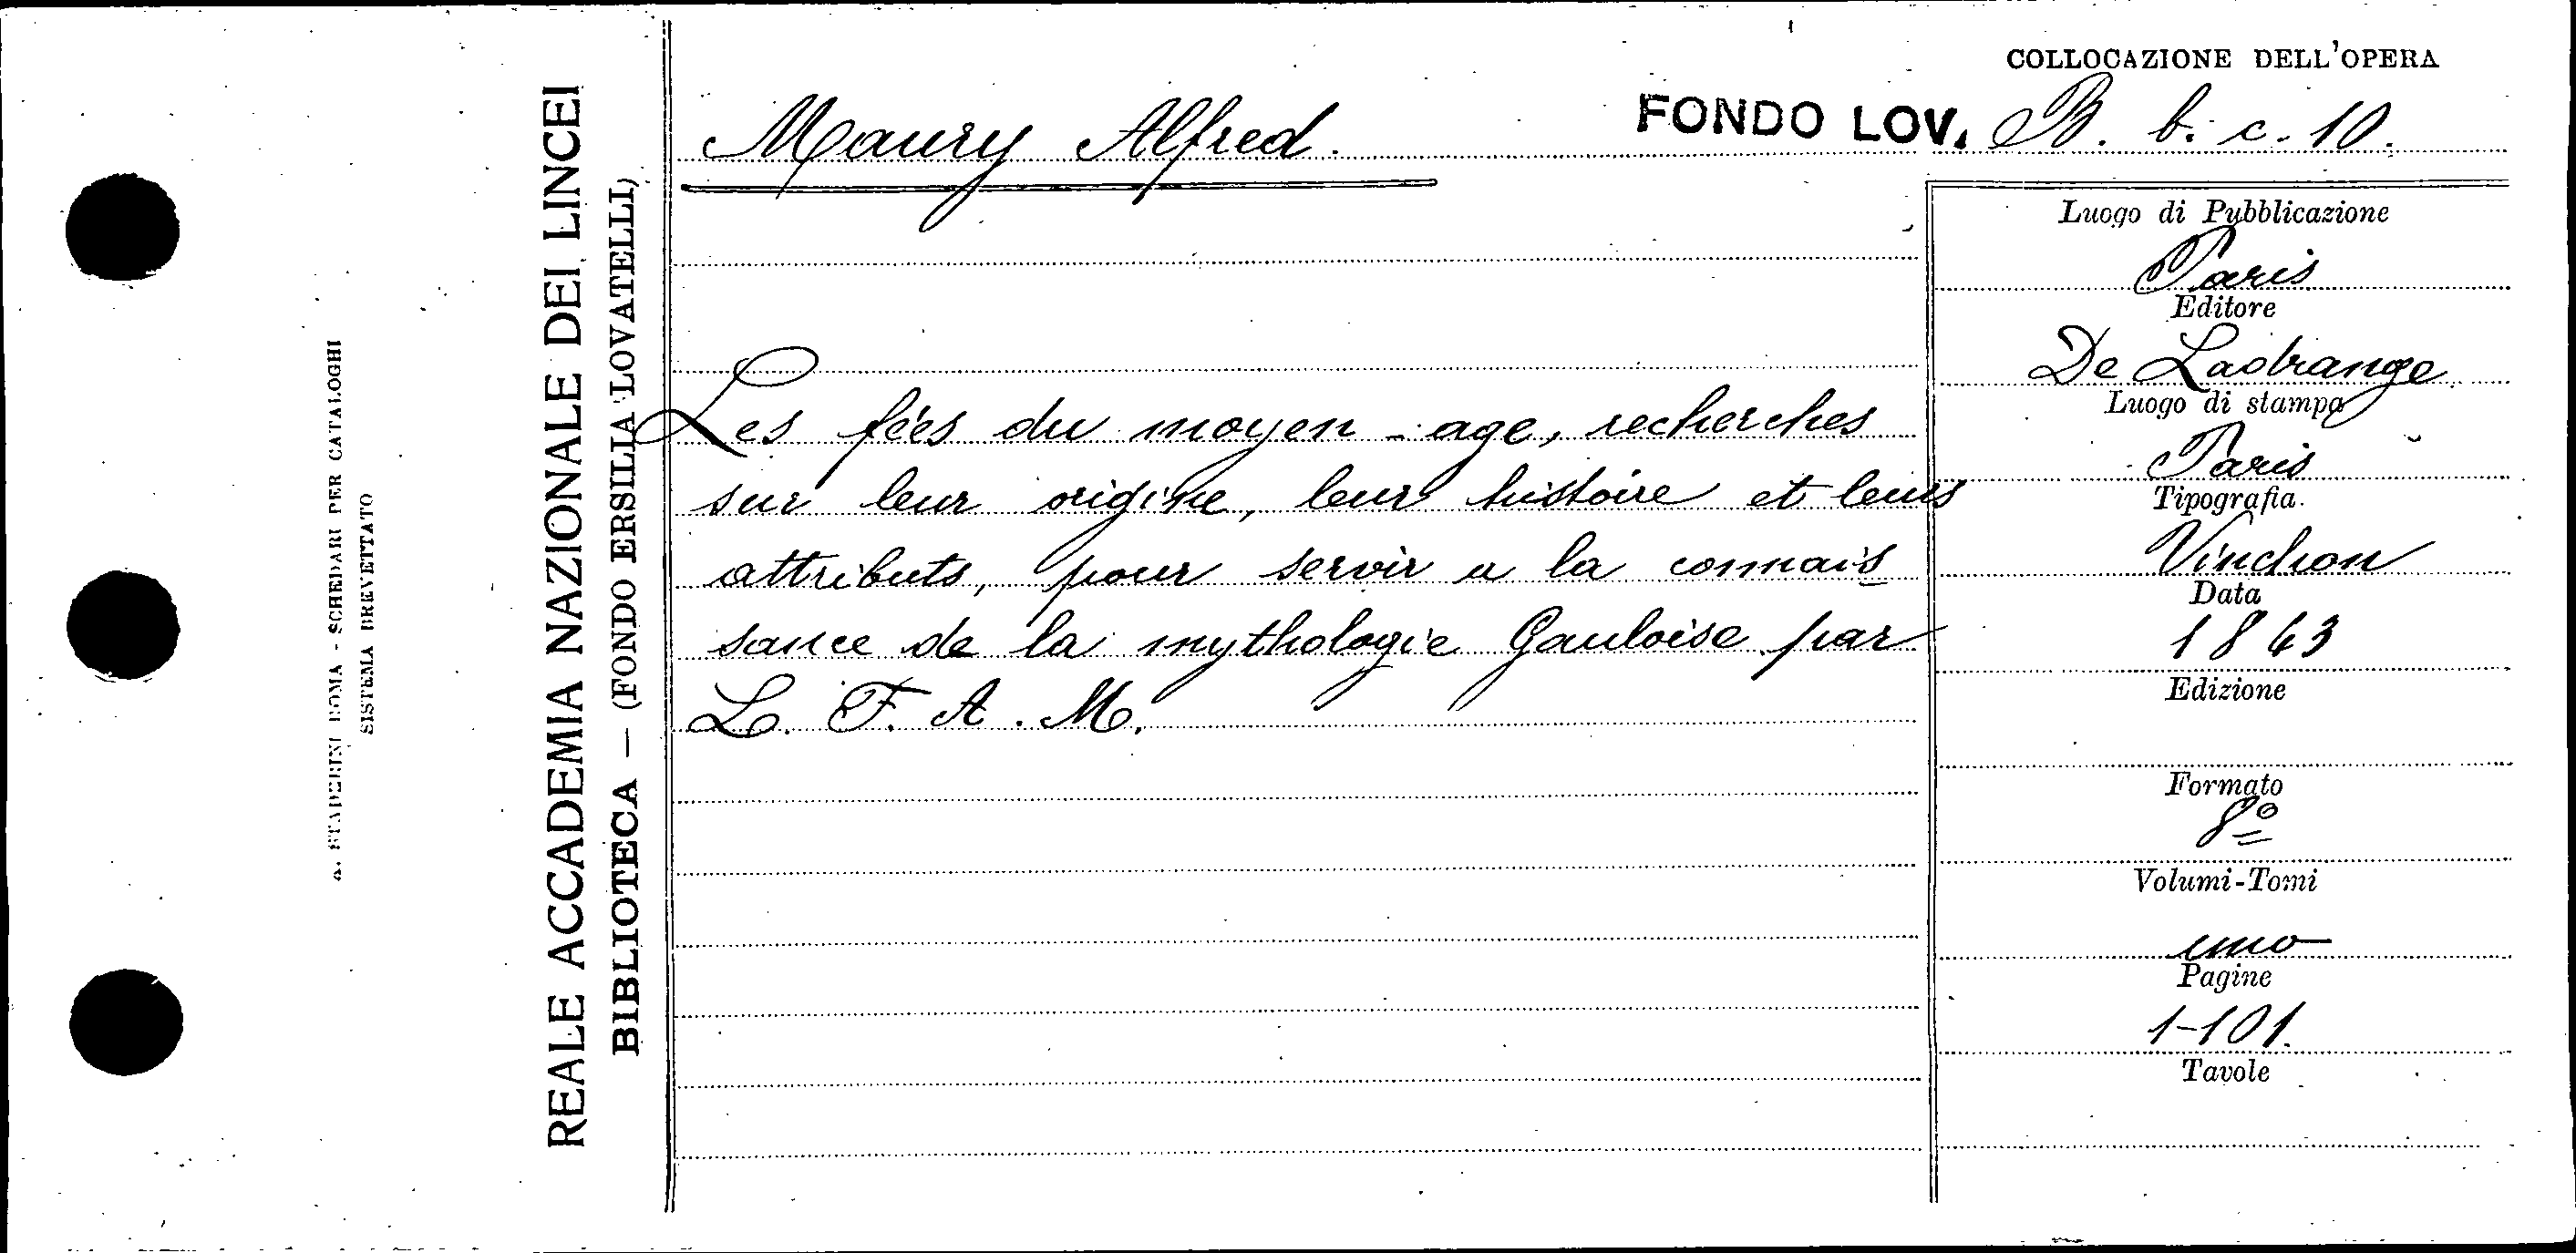 COLLOCAZIONE DELL'OPERA
Maury Alfred.
FONDO LOV. B. b. c. 10.
Les fées du moyen-age, recherches
sur leur origine, leur histoire et leurs
attributs, pour servir a la connais
sance de la mythologie Gauloise par
L. F. A. M.
Luogo di Pubblicazione
Paris
Editore
De Ladrange
Luogo di stampa
Paris
Tipografia
Vinchon
Data
1843
Edizione
Formato
8º
Volumi-Tomi
uno
Pagine
1-101.
Tavole
REALE ACCADEMIA NAZIONALE DEI LINCEI
BIBLIOTECA — (FONDO ERSILIA LOVATELLI)
A. STADERINI ROMA - SCHEDARI PER CATALOGHI
SISTEMA BREVETTATO